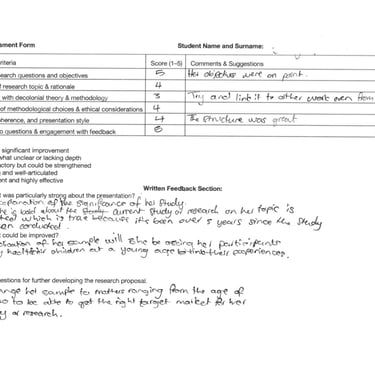 ssment Form Student Name and Surname:
riteria Score (1–5) Comments & Suggestions
search questions and objectives 5 Her objectives were on point.
f research topic & rationale 4
with decolonial theory & methodology 3 Try and link it to other work even from
of methodological choices & ethical considerations 4
oherence, and presentation style 4 The structure was great
o questions & engagement with feedback 5
significant improvement
what unclear or lacking depth
ctory but could be strengthened
and well-articulated
ent and highly effective
Written Feedback Section:
t was particularly strong about the presentation?
explanation of the significance of her study.
she is said about the study current study or research on her topic is
which is true because its been over 5 years since the study
en conducted.
t could be improved?
of her sample will she be asking her participants
children at a young age their experiences.
estions for further developing the research proposal:
ange her sample to mothers ranging from the age of
to be able to get the right target market for her
y or research.